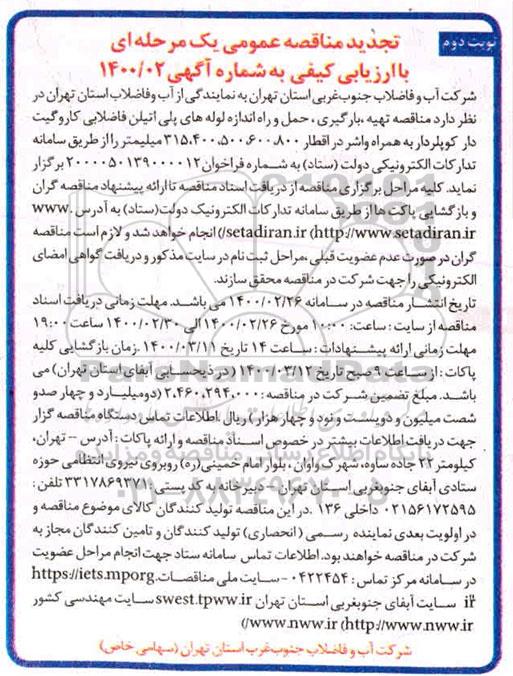 نوبت دوم
تجدید مناقصه عمومی یک مرحله ای
با ارزیابی کیفی به شماره آگهی ۱۴۰۰/۰۲
شرکت آب و فاضلاب جنوب غربی استان تهران به نمایندگی از آب وفاضلاب استان تهران در
نظر دارد مناقصه تهیه ،بارگیری ، حمل و راه اندازه لوله های پلی اتیلن فاضلابی کاروگیت
دار کوپلردار به همراه واشر در اقطار ۳۱۵،۴۰۰،۵۰۰،۶۰۰،۸۰۰ میلیمتر رااز طریق سامانه
تدارکات الکترونیکی دولت (ستاد) به شماره فراخوان ۲۰۰۰۰۵۰۱۳۹۰۰۰۰۱۲ برگزار
نماید. کلیه مراحل برگزاری مناقصه از دریافت اسناد مناقصه تا ارائه پیشنهاد مناقصه گران
و بازگشایی پاکت ها از طریق سامانه تدارکات الکترونیک دولت(ستاد) به آدرس .www
setadiran.ir (http://www.setadiran.ir/) انجام خواهد شد و لازم است مناقصه
گران در صورت عدم عضویت قبلی ،مراحل ثبت نام در سایت مذکور و دریافت گواهی امضای
الکترونیکی را جهت شرکت در مناقصه محقق سازند.
تاریخ انتشار مناقصه در سامانه ۱۴۰۰/۰۲/۲۶ می باشد. مهلت زمانی دریافت اسناد
مناقصه از سایت : ساعت: ۱۰:۰۰ مورخ ۱۴۰۰/۰۲/۲۶ الی ۱۴۰۰/۰۲/۳۰ ساعت ۱۹:۰۰
مهلت زمانی ارائه پیشنهادات : ساعت ۱۴ تاریخ ۱۴۰۰/۰۳/۱۱ .زمان بازگشایی کلیه
پاکات : از ساعت ۹ صبح تاریخ ۱۴۰۰/۰۳/۱۲ ( در ذیحسابی آبفای استان تهران) می
باشد. مبلغ تضمین شرکت در مناقصه : ۲.۴۶۰.۲۹۴.۰۰۰ (دومیلیارد و چهار صدو
شصت میلیون و دویست و نود و چهار هزار ) ریال .اطلاعات تماس دستگاه مناقصه گزار
جهت دریافت اطلاعات بیشتر در خصوص اسناد مناقصه و ارائه پاکات : آدرس -- تهران،
کیلومتر ۲۲ جاده ساوه، شهرک واوان ، بلوار امام خمینی(ره) روبروی نیروی انتظامی حوزه
ستادی آبفای جنوبغربی استان تهران - دبیرخانه به کد پستی :۳۳۱۷۸۶۹۳۷۱ تلفن :
۰۲۱۵۶۱۷۲۵۹۵ داخلی ۱۳۶ .در این مناقصه تولید کنندگان کالای موضوع مناقصه و
در اولویت بعدی نماینده رسمی (انحصاری) تولید کنندگان و تامین کنندگان مجاز به
شرکت در مناقصه خواهند بود. اطلاعات تماس سامانه ستاد جهت انجام مراحل عضویت
در سامانه مرکز تماس : ۰۴۲۲۴۵۴ - سایت ملی مناقصات .https://iets.mporg
ir سایت آبفای جنوبغربی استان تهران swest.tpww.ir سایت مهندسی کشور
www.nww.ir (http://www.nww.ir/)
شرکت آب و فاضلاب جنوب غرب استان تهران (سهامی خاص)
ParsNamadData